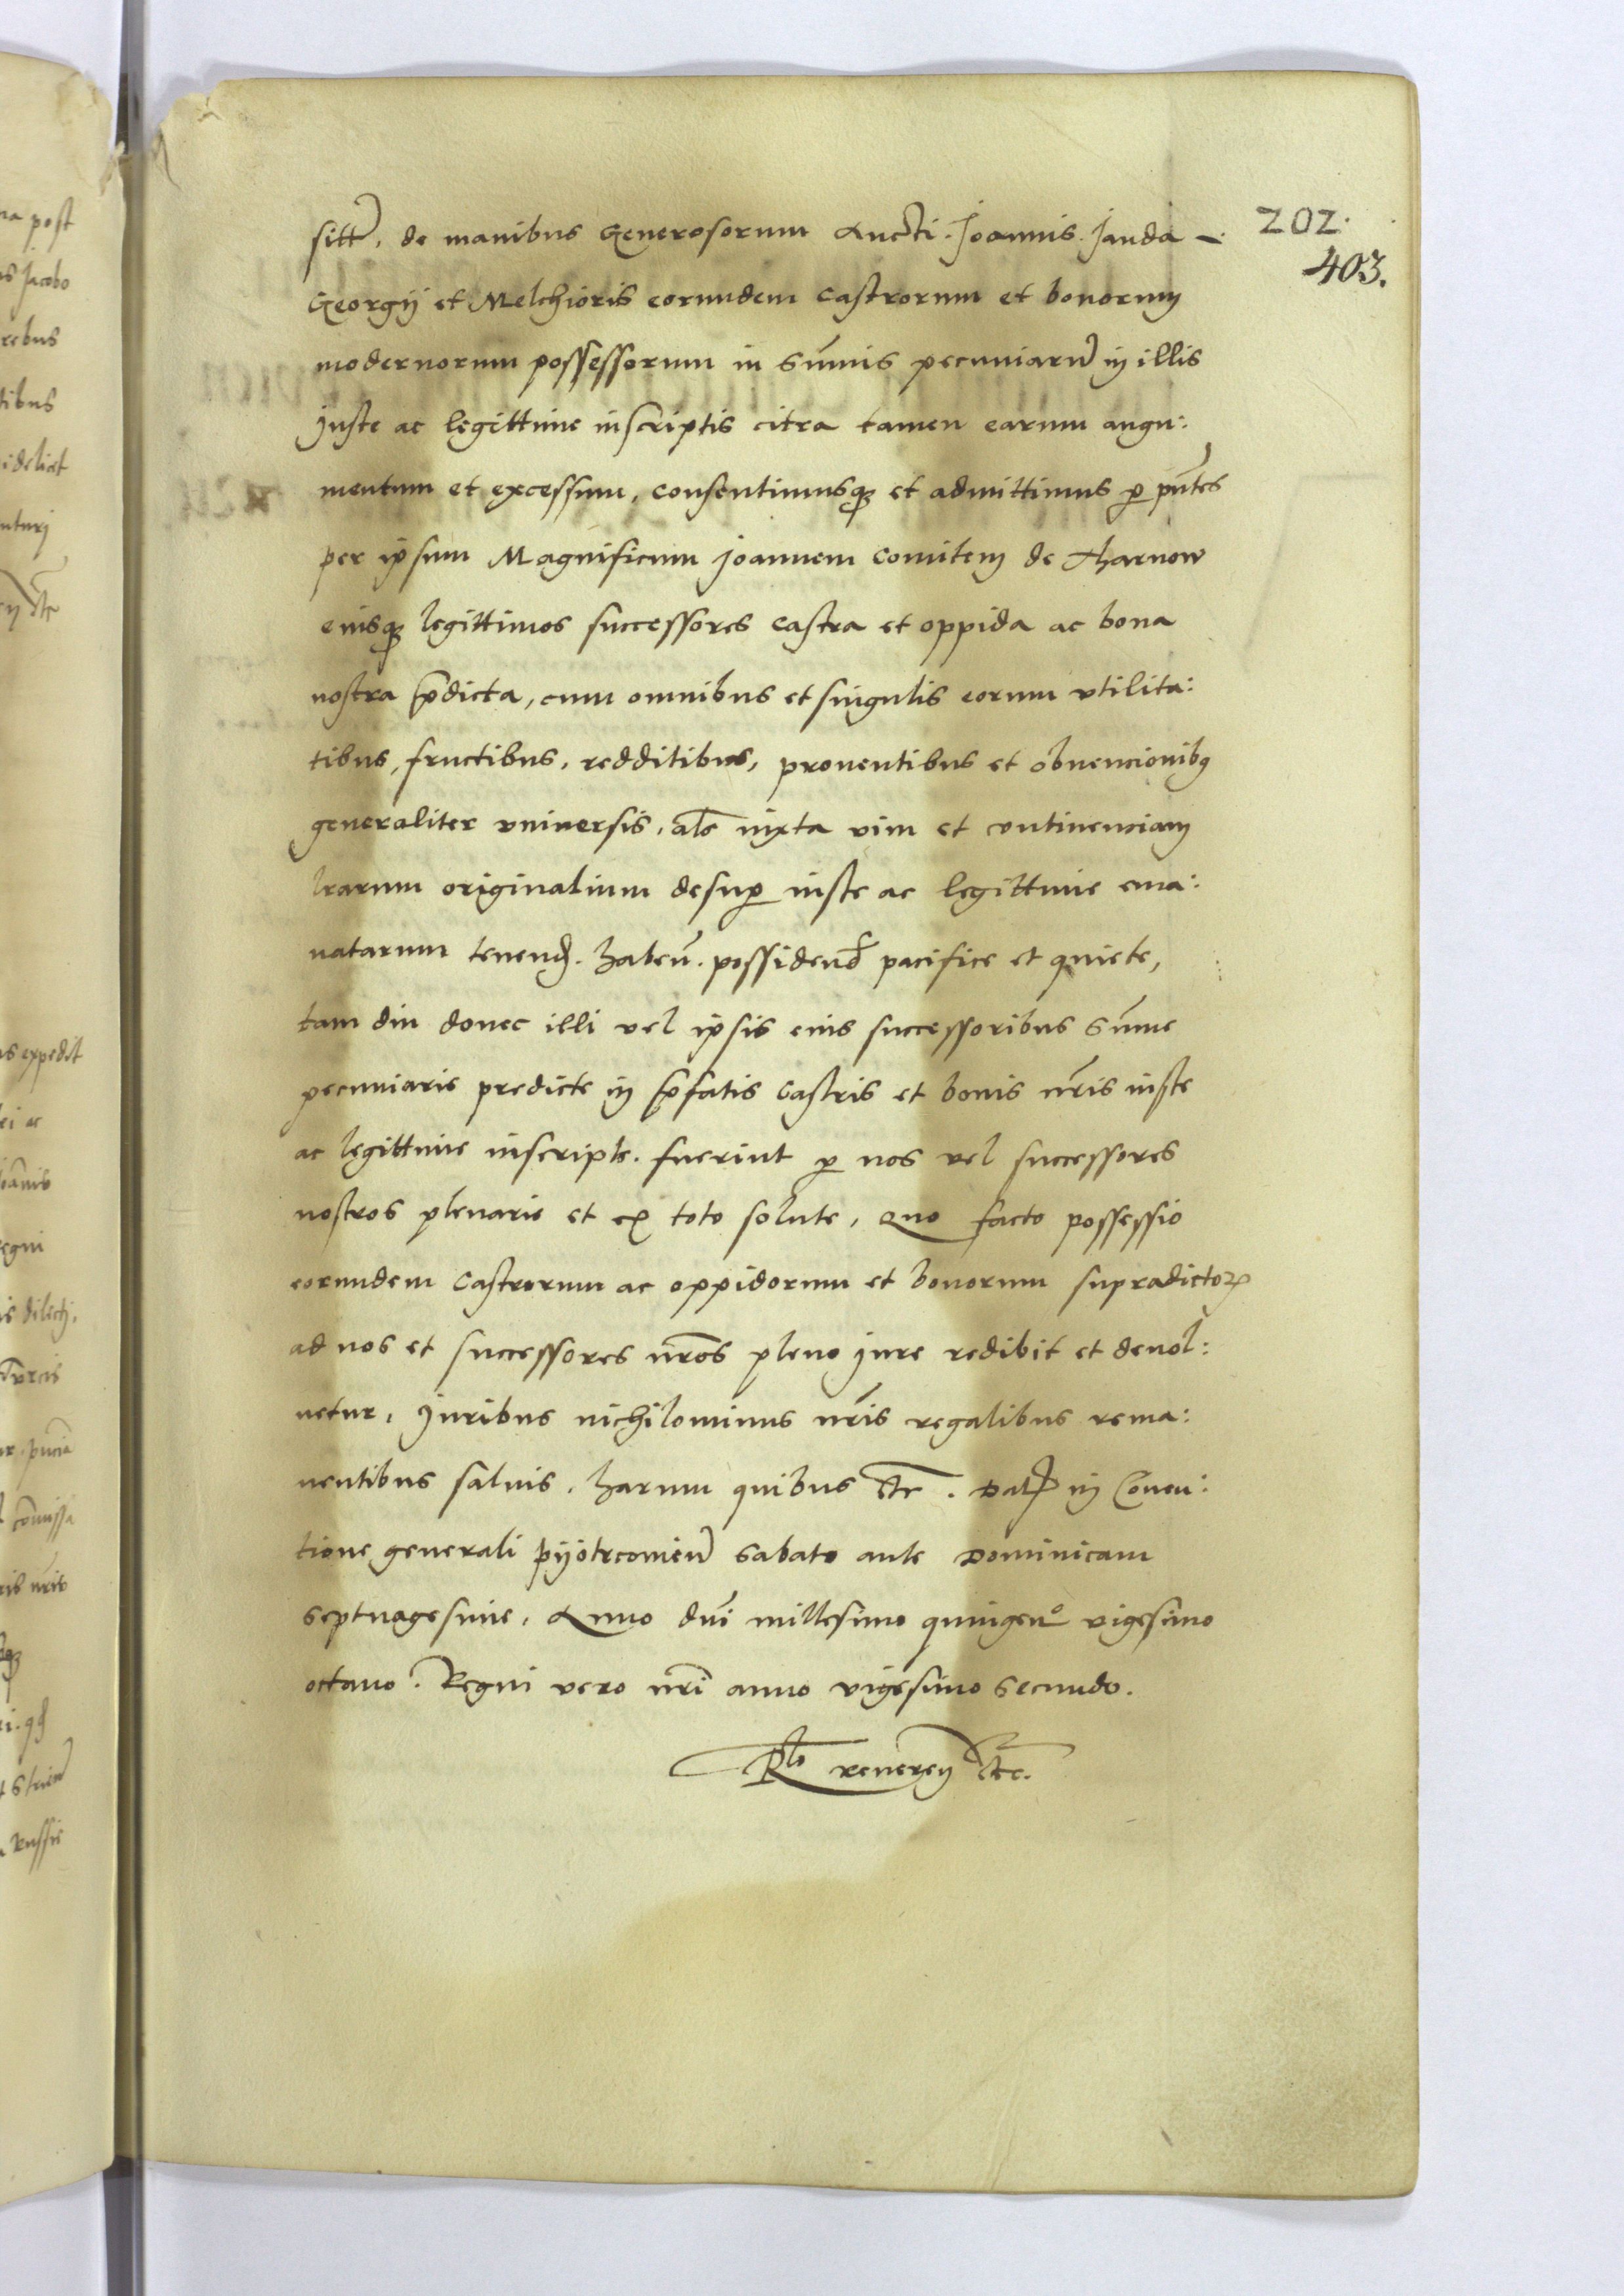 sittr̃, de manibus Generosorum Aucti. Joannis. Janda - 202.
403.
Georgij et Melchioris eorundem Castrorum et bonorum
modernorum possessorum in sũmis pecuniarũ in illis
juste ac legittime inscriptis citra tamen earum augu:
mentum et excessum, consentimusqꝫ et admittimus ꝑ pñtes
per ipsum Magnificum joannem comitem de Tharnow
eiusqꝫ legittimos successores castra et oppida ac bona
nostra p̃dicta, cum omnibus et singulis eorum vtilita:
tibus, fructibus, redditibus, prouentibus et obuencionibꝰ
generaliter vniuersis, al̃s iuxta vim et continenciam
l̃rarum originalium desuꝑ iuste ac legittime ema:
natarum tenend̃. haben̄. possidend̃ pacifice et quiete,
tam diu donec illi vel ipsis eius successoribus sũme
pecuniarie predicte in p̃fatis castris et bonis nr̃is iuste
ac legittime inscripte. fuerint ꝑ nos vel successores
nostros plenarie et ex toto solute, Quo facto possessio
eorundem castrorum ac oppidorum et bonorum supradictoꝝ
ad nos et successores nr̃os pleno jure redibit et deuol:
uetur, Juribus nichilominus nr̃is regalibus rema:
nentibus saluis. harum quibus etc̃. Dat̃ in Conuen:
tione generali pijotrcouien̄ sabato ante Dominicam
septuagesime, Anno dñi millesimo quingenº vigesimo
octauo. Regni vero nr̃i anno vigesimo secundo.
Rlo reueren etc̃.